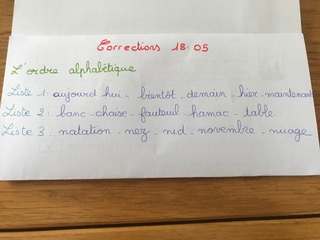 Corrections 18.05
L'ordre alphabétique
Liste 1: aujourd'hui - bientôt - demain - hier - maintenant
Liste 2: banc - chaise - fauteuil - hamac - table
Liste 3: natation - nez - nid - novembre - nuage